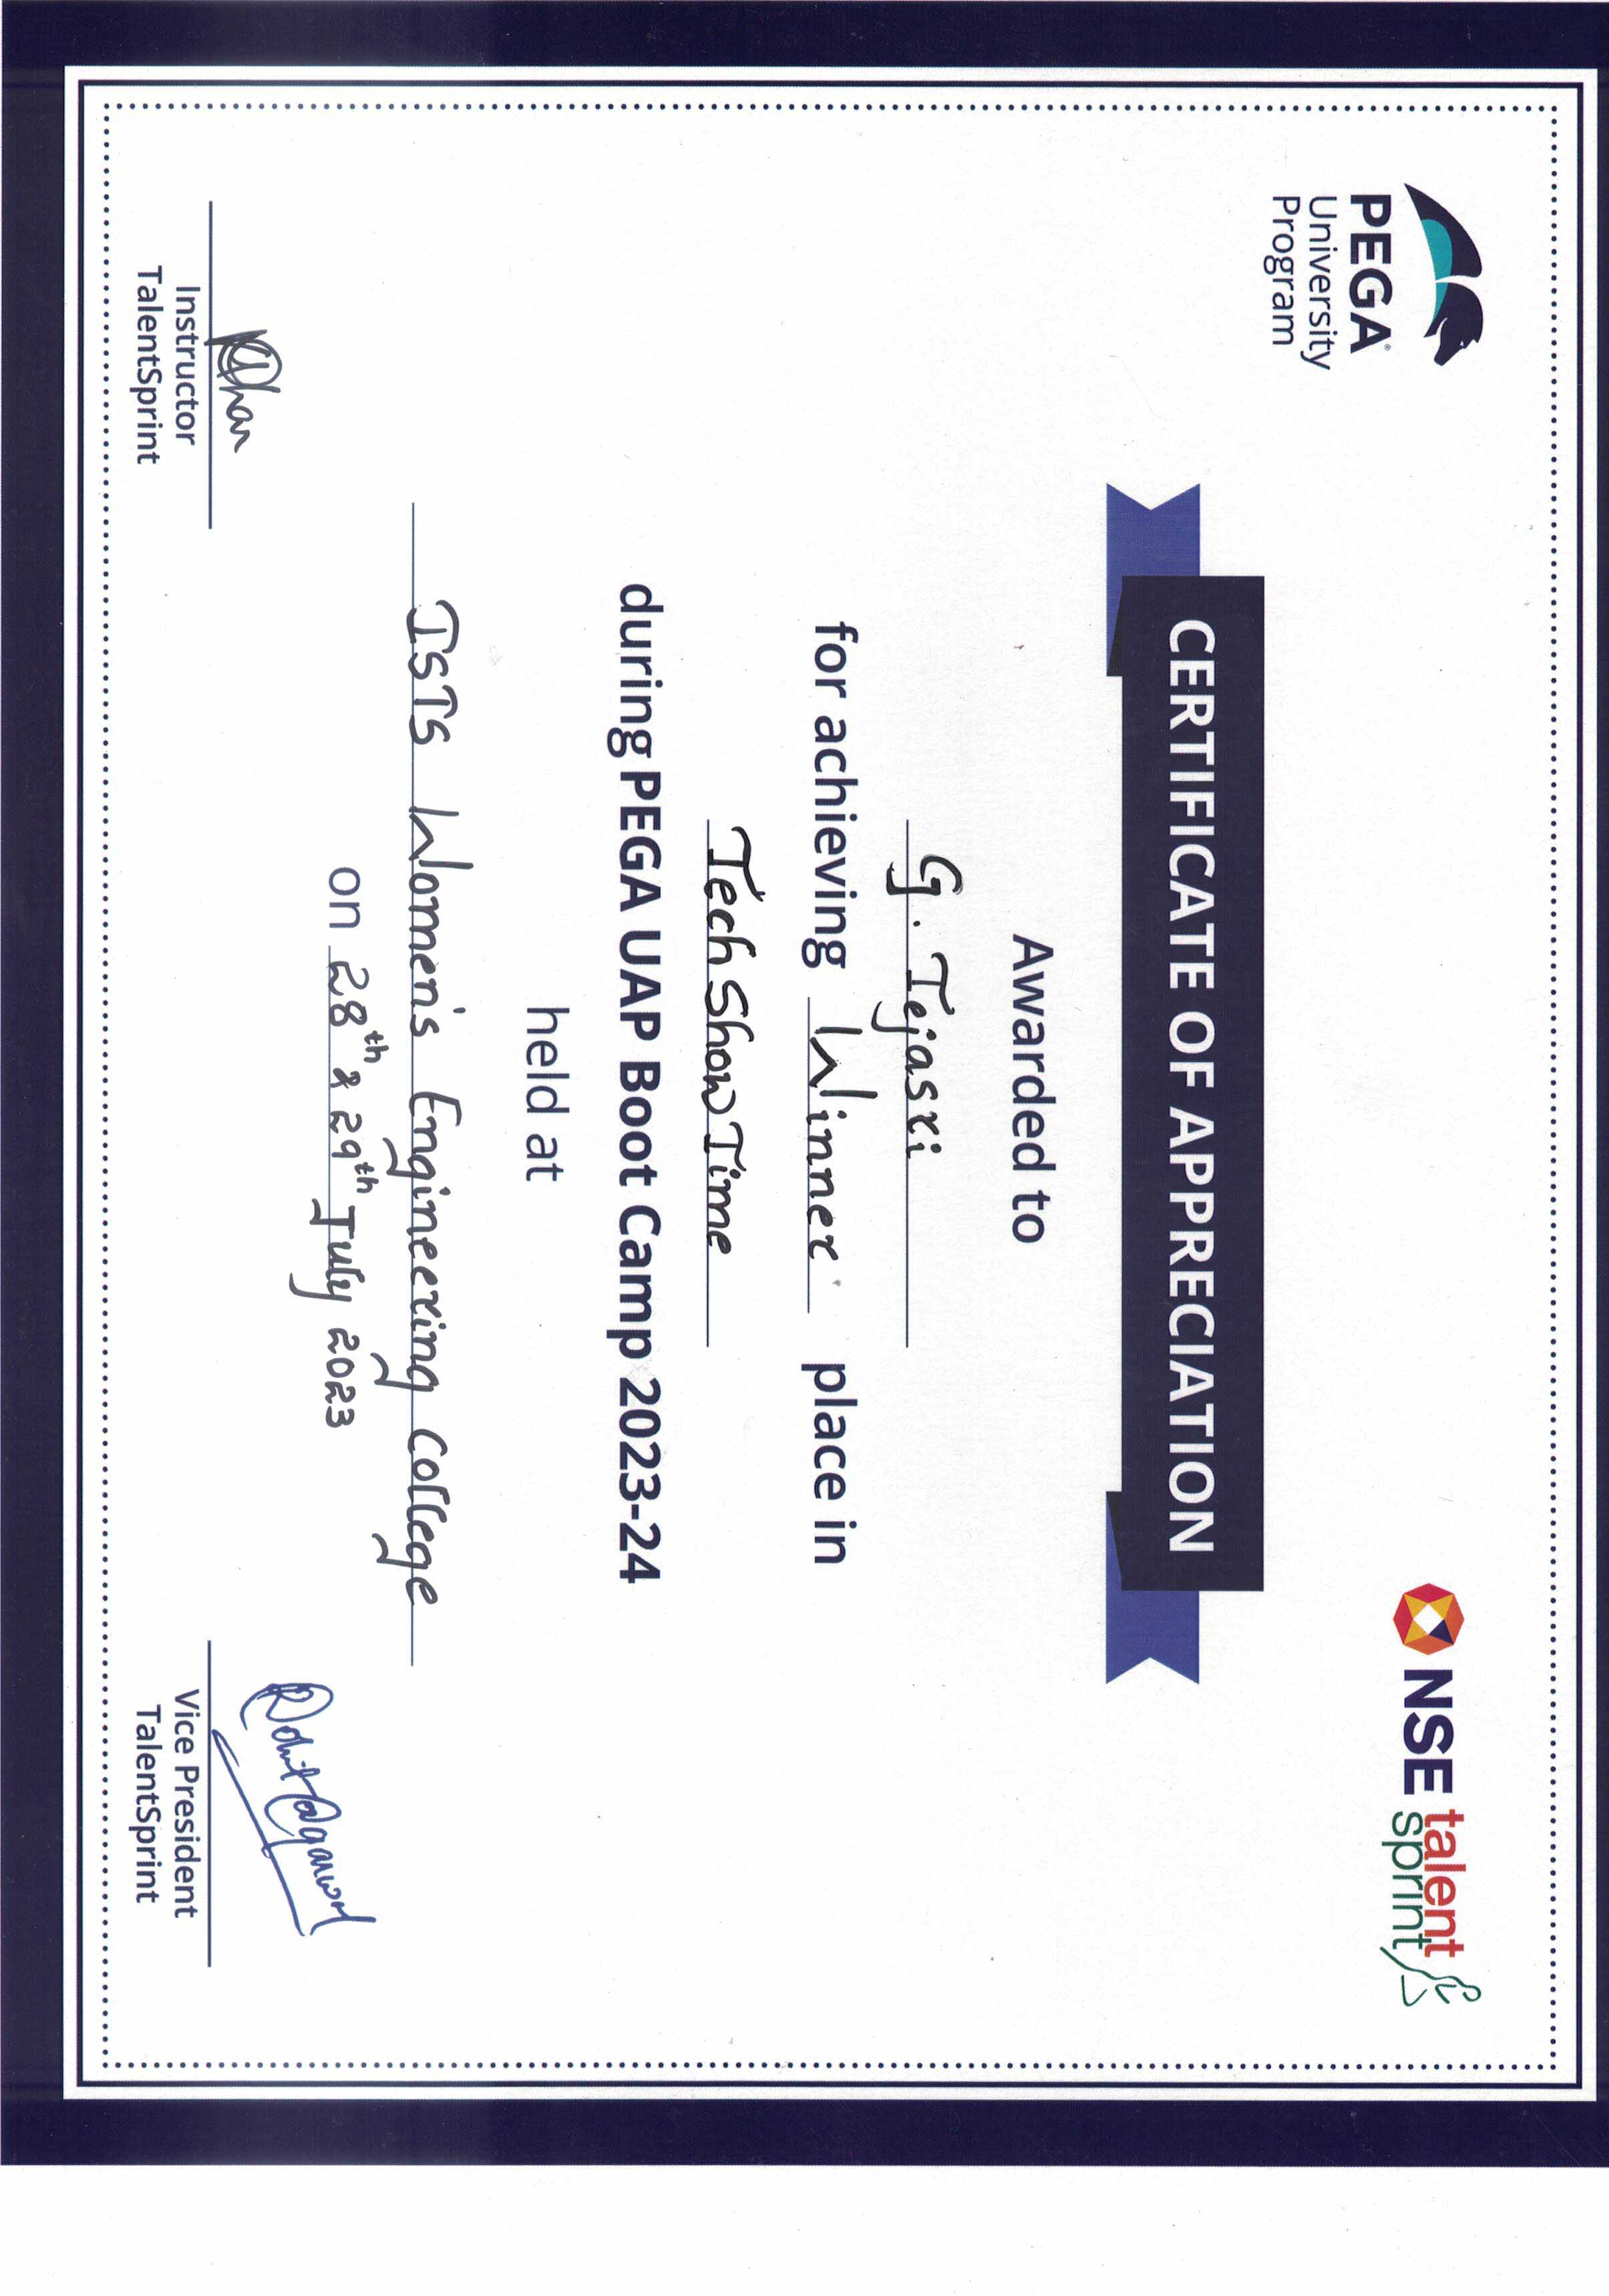 PEGA®
University
Program
NSE talent
sprint
CERTIFICATE OF APPRECIATION
Awarded to
G. Tejasri
for achieving Winner place in
Tech Show Time
during PEGA UAP Boot Camp 2023-24
held at
ISTS Women's Engineering College
on 28th & 29th July 2023
Rohit Agarwal
Instructor
TalentSprint
Vice President
TalentSprint